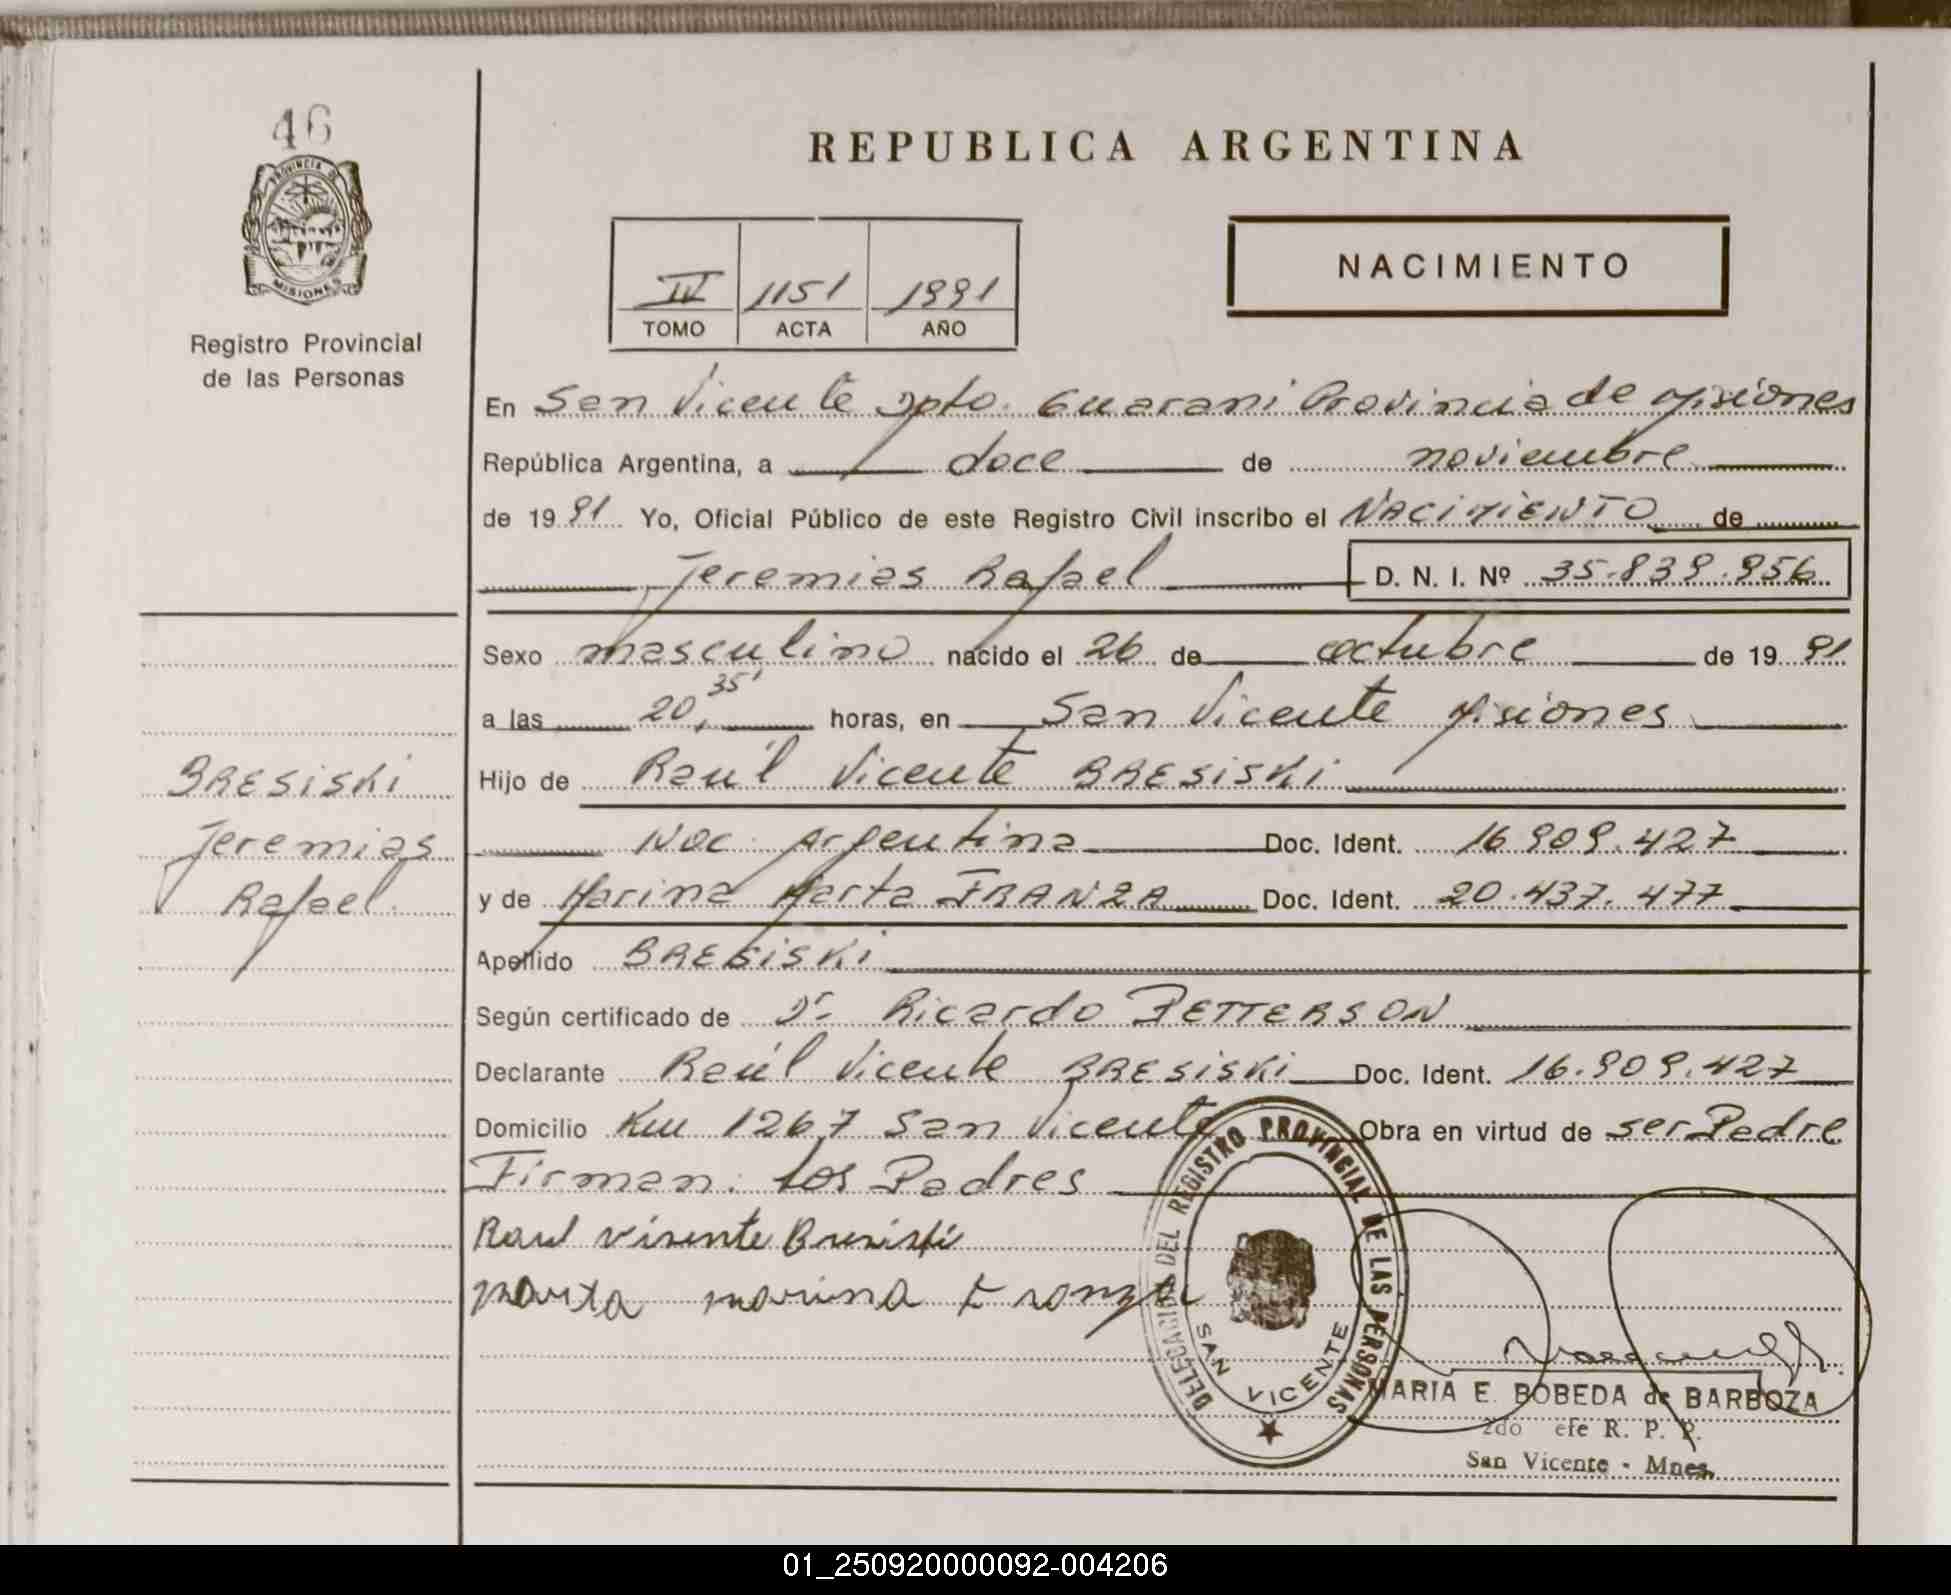 46
PROVINCIA DE
MISIONES
Registro Provincial
de las Personas
REPUBLICA ARGENTINA
IV 1151 1991
TOMO ACTA AÑO
NACIMIENTO
En San Vicente Dpto. Guarani Provincia de Misiones
República Argentina, a doce de noviembre
de 19 91 Yo, Oficial Público de este Registro Civil inscribo el NACIMIENTO de
Jeremias Rafael D. N. I. Nº 35.839.956
Sexo masculino nacido el 26 de octubre de 19 91
a las 20,35' horas, en San Vicente Misiones
Hijo de Raúl Vicente BRESISKI
Nac. Argentina Doc. Ident. 16.909.427
y de Marina Marta FRANZA Doc. Ident. 20.437.477
Apellido BRESISKI
Según certificado de Dr. Ricardo PETTERSON
Declarante Raúl Vicente BRESISKI Doc. Ident. 16.909.427
Domicilio Km 1267 San Vicente Obra en virtud de ser Padre
Firman: Los Padres
BRESISKI
Jeremias
Rafael
Raul visente Bresiski
Marta marina Franza
DELEGACION DEL REGISTRO PROVINCIAL DE LAS PERSONAS
SAN VICENTE
MARIA E. BOBEDA de BARBOZA
2do efe R. P. P.
San Vicente - Mnes.
01_250920000092-004206